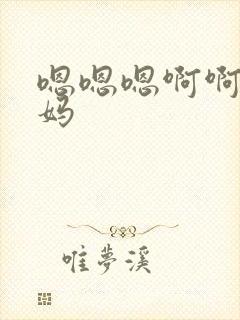 嗯嗯嗯啊啊
妈
唯夢溪